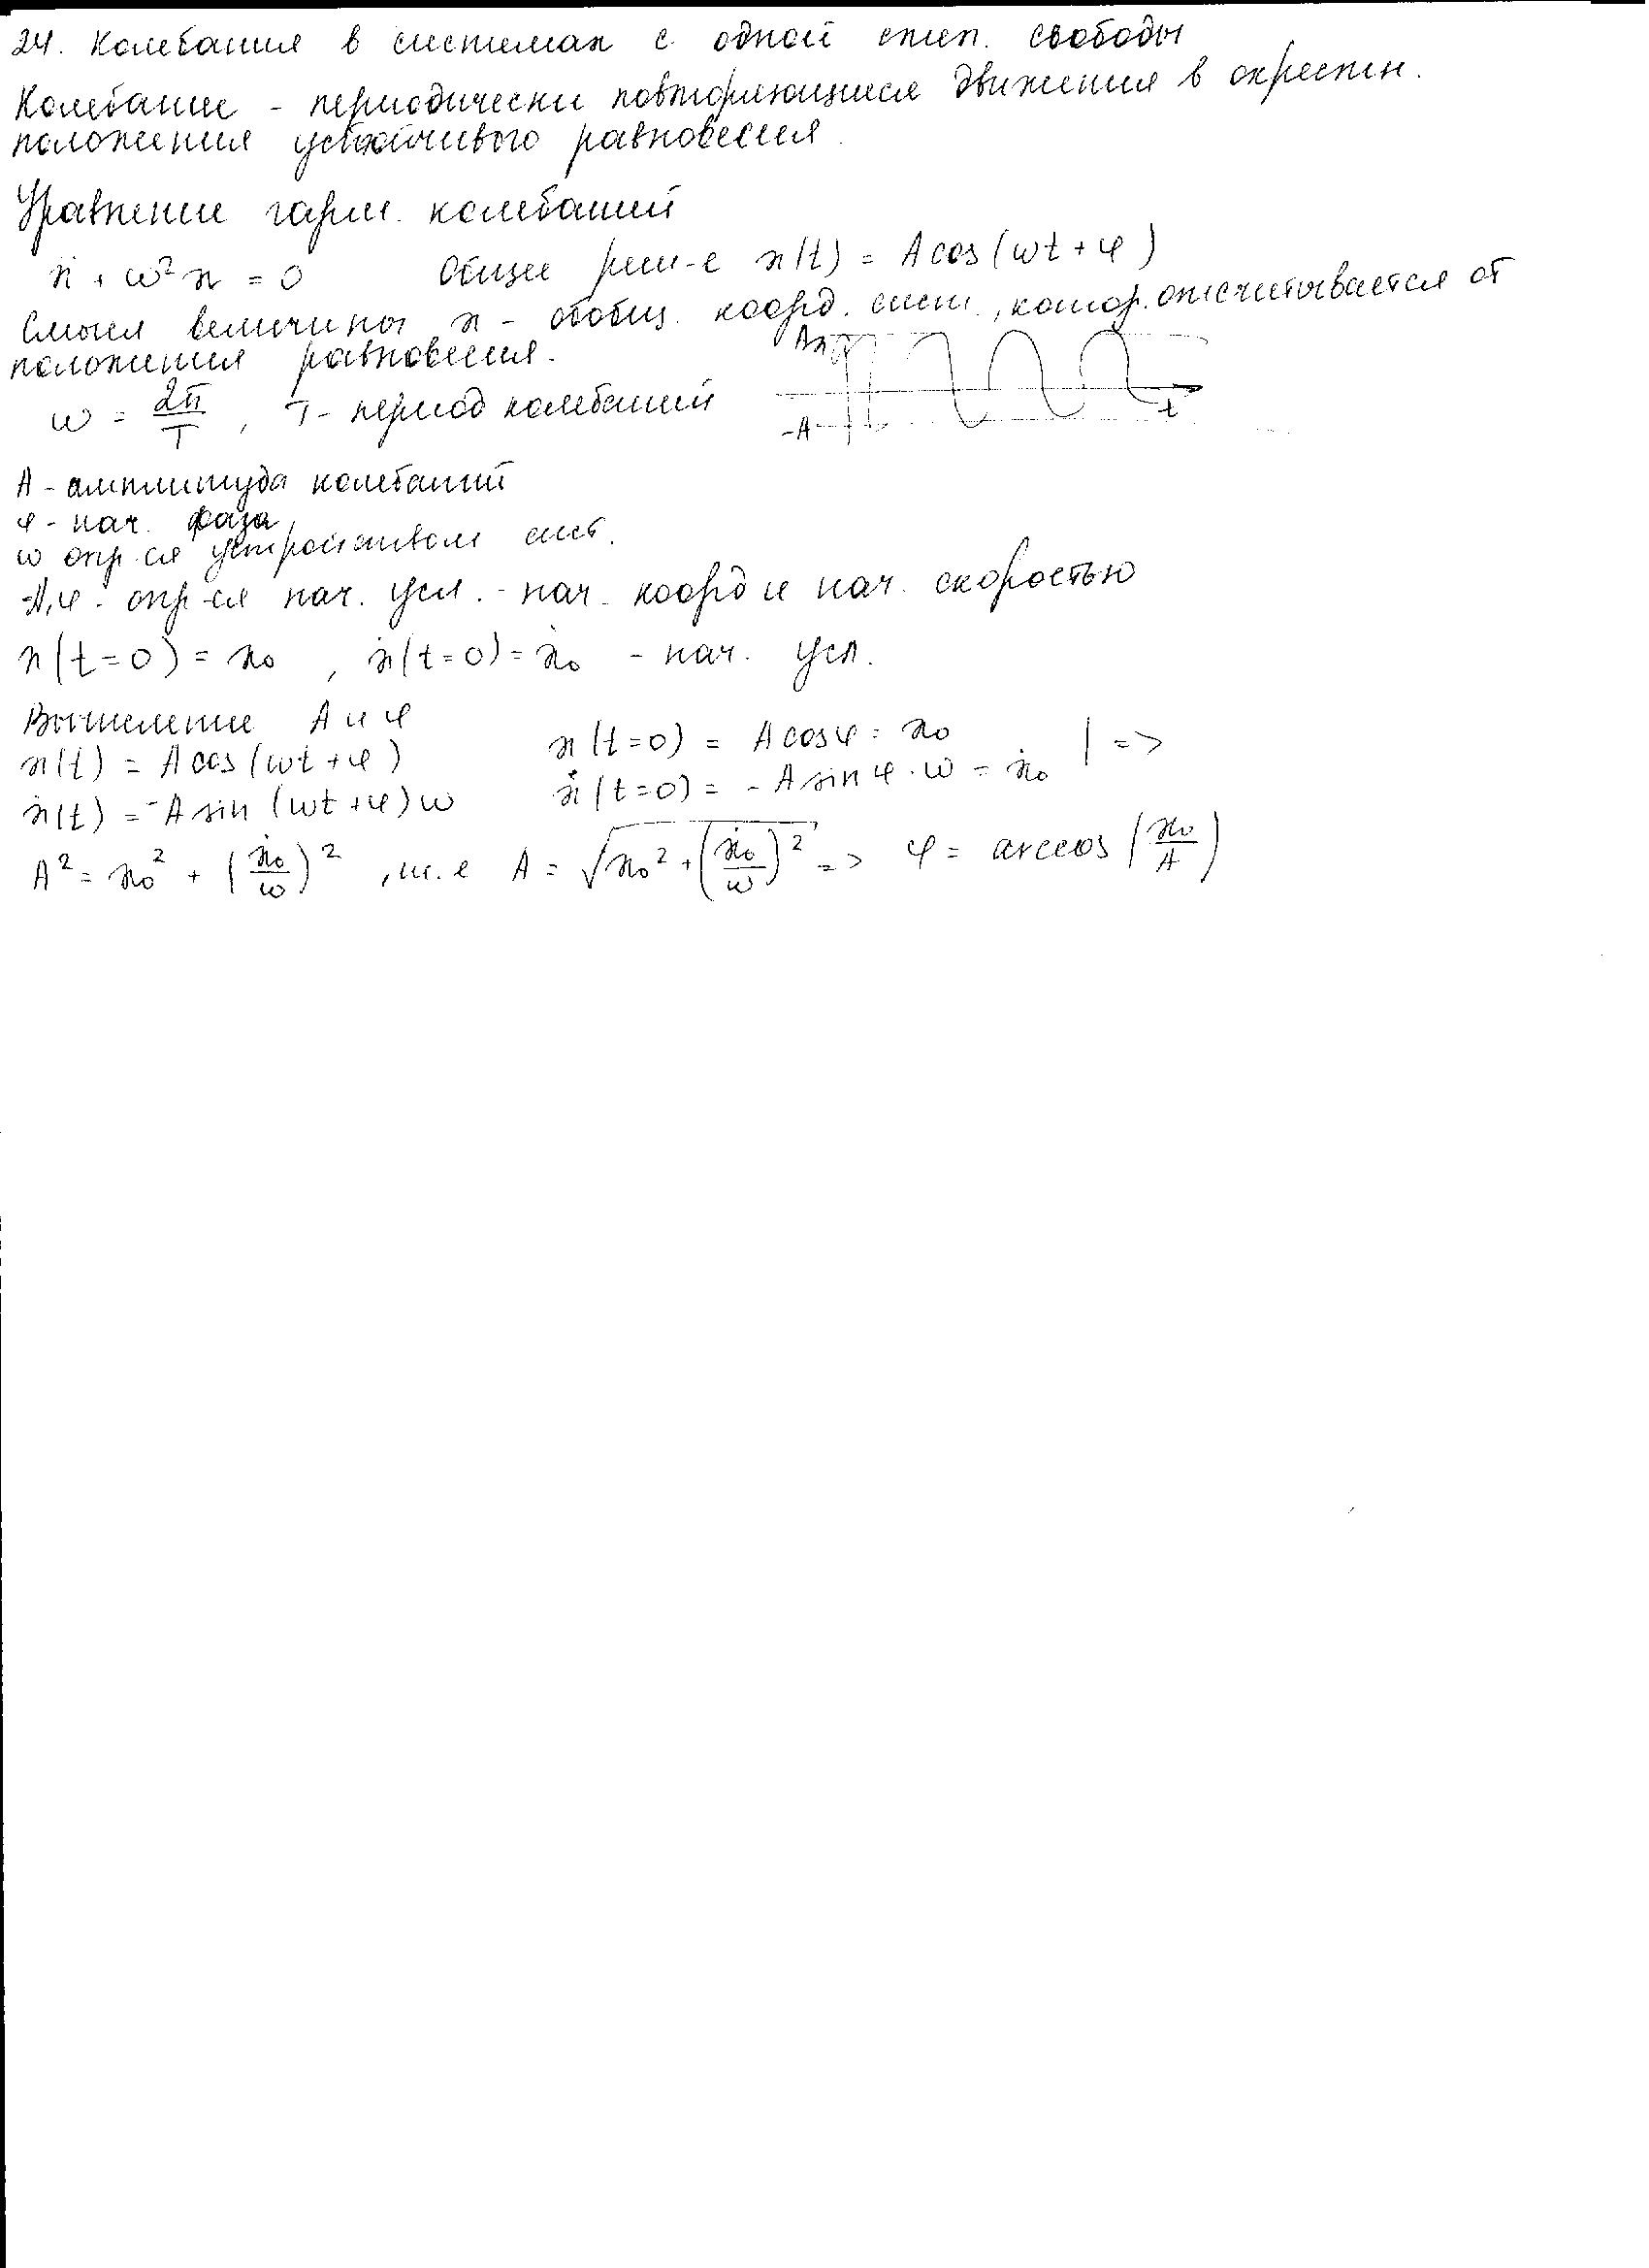 24. Колебания в системах с одной степ. свободы
Колебание - периодически повторяющиеся движения в окрестн.
положения устойчивого равновесия.
Уравнение гарм. колебаний
ẍ + ω²x = 0 Общее реш-е x(t) = A cos(ωt + φ)
Смысл величины x - обобщ. коорд. сист., котор. отсчитывается от
положения равновесия.
Ax
ω = 2π/T, T - период колебаний
t
-A
A - амплитуда колебаний
φ - нач. фаза
ω опр-ся устройством сист.
A,φ - опр-ся нач. усл. - нач. коорд и нач. скоростью
x(t=0) = x₀, ẋ(t=0) = ẋ₀ - нач. усл.
Вычисление A и φ
x(t) = A cos(ωt + φ) x(t=0) = A cosφ = x₀ | =>
ẋ(t) = -A sin(ωt + φ)ω ẋ(t=0) = -A sinφ·ω = ẋ₀
A² = x₀² + (ẋ₀/ω)², т.е A = √(x₀² + (ẋ₀/ω)²) => φ = arccos(x₀/A)